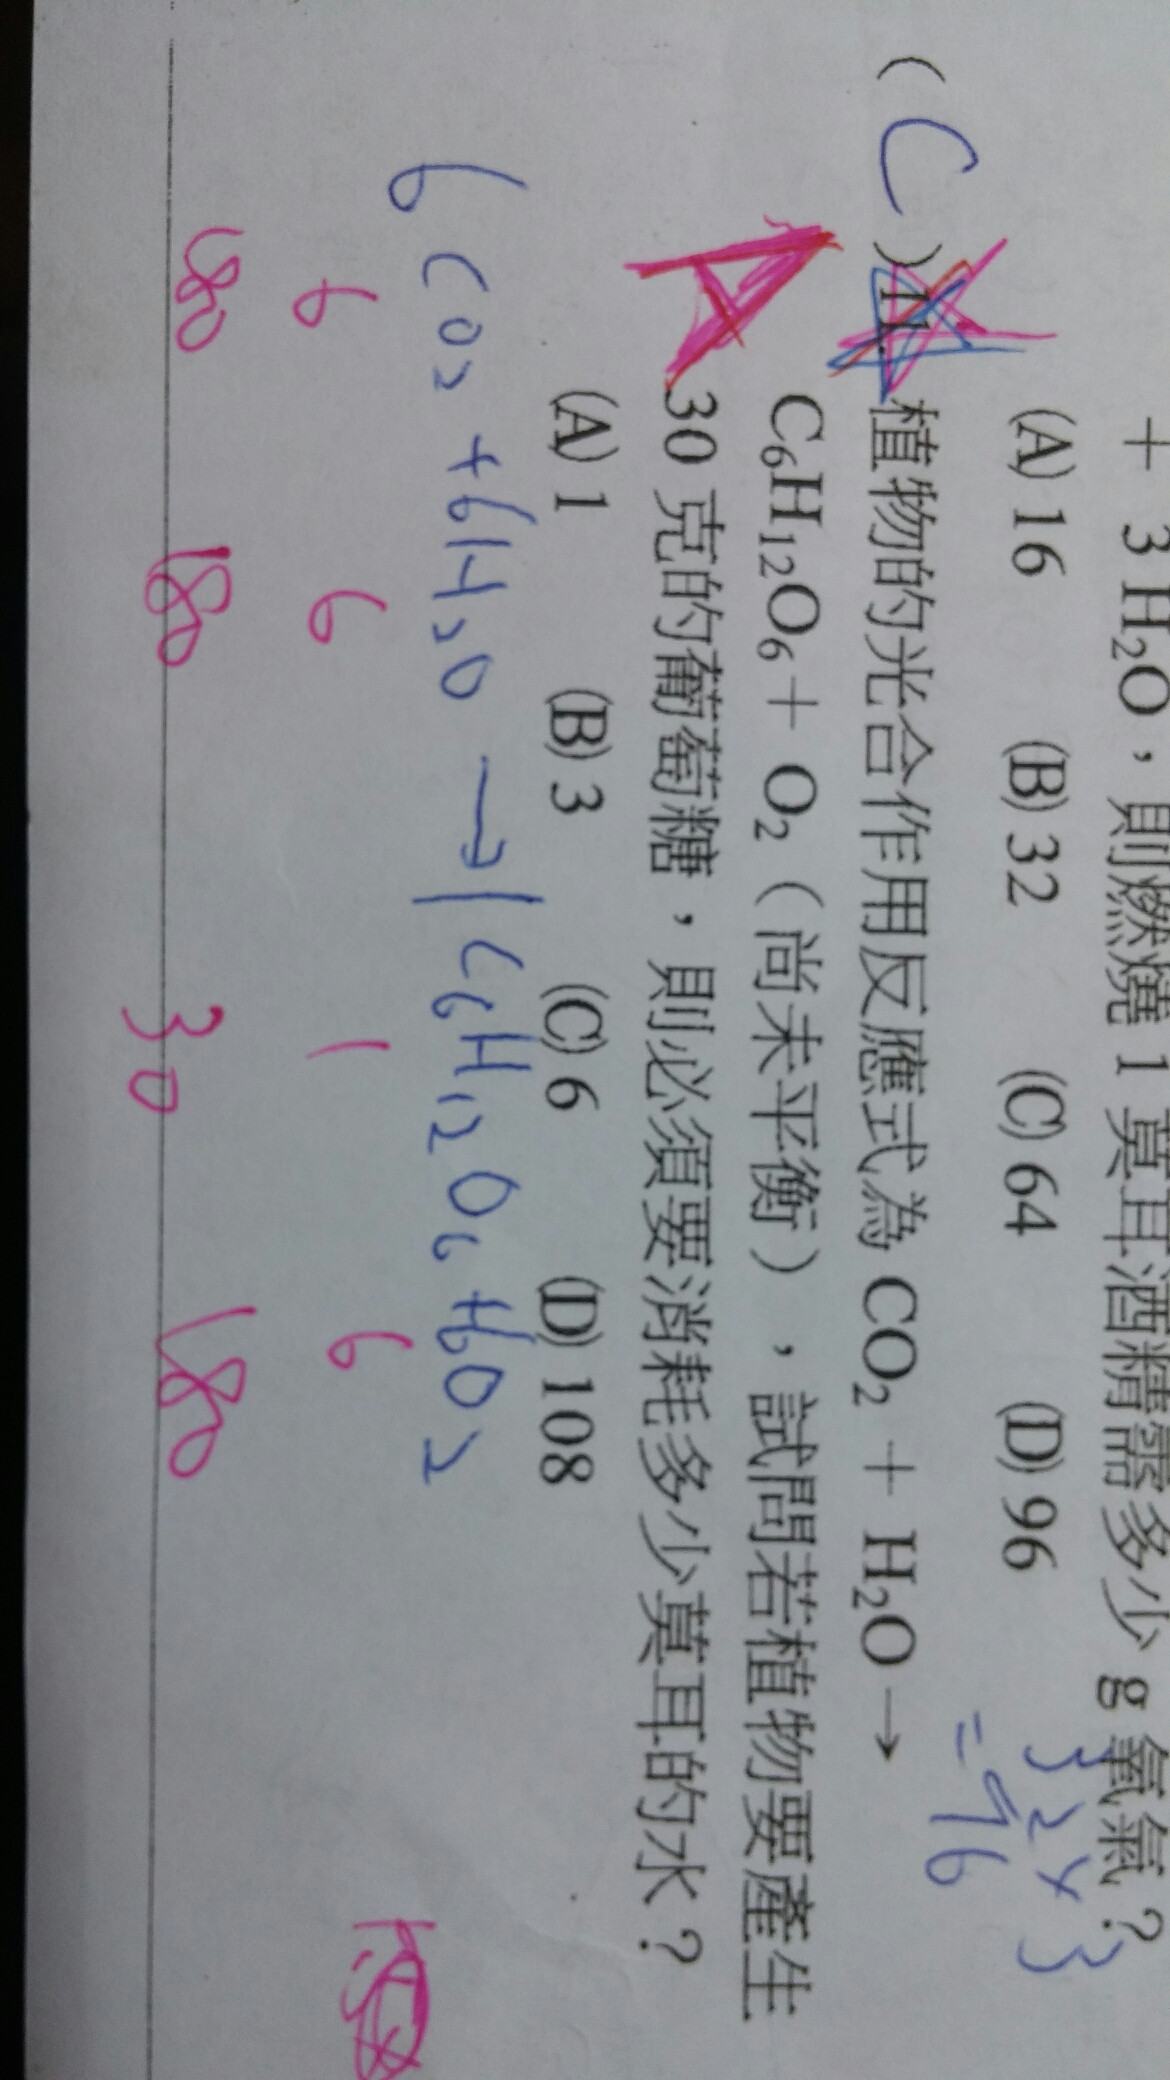 + 3 H₂O，則燃燒 1 莫耳酒精需多少 g 氧氣？
32×3
=96
(A) 16 (B) 32 (C) 64 (D) 96
( C ) 11. 植物的光合作用反應式為 CO₂ + H₂O →
A
C₆H₁₂O₆ + O₂（尚未平衡），試問若植物要產生
30 克的葡萄糖，則必須要消耗多少莫耳的水？
(A) 1 (B) 3 (C) 6 (D) 108
6CO₂ + 6H₂O → 1C₆H₁₂O₆ + 6O₂
6 6 1 6
180 180 30 180